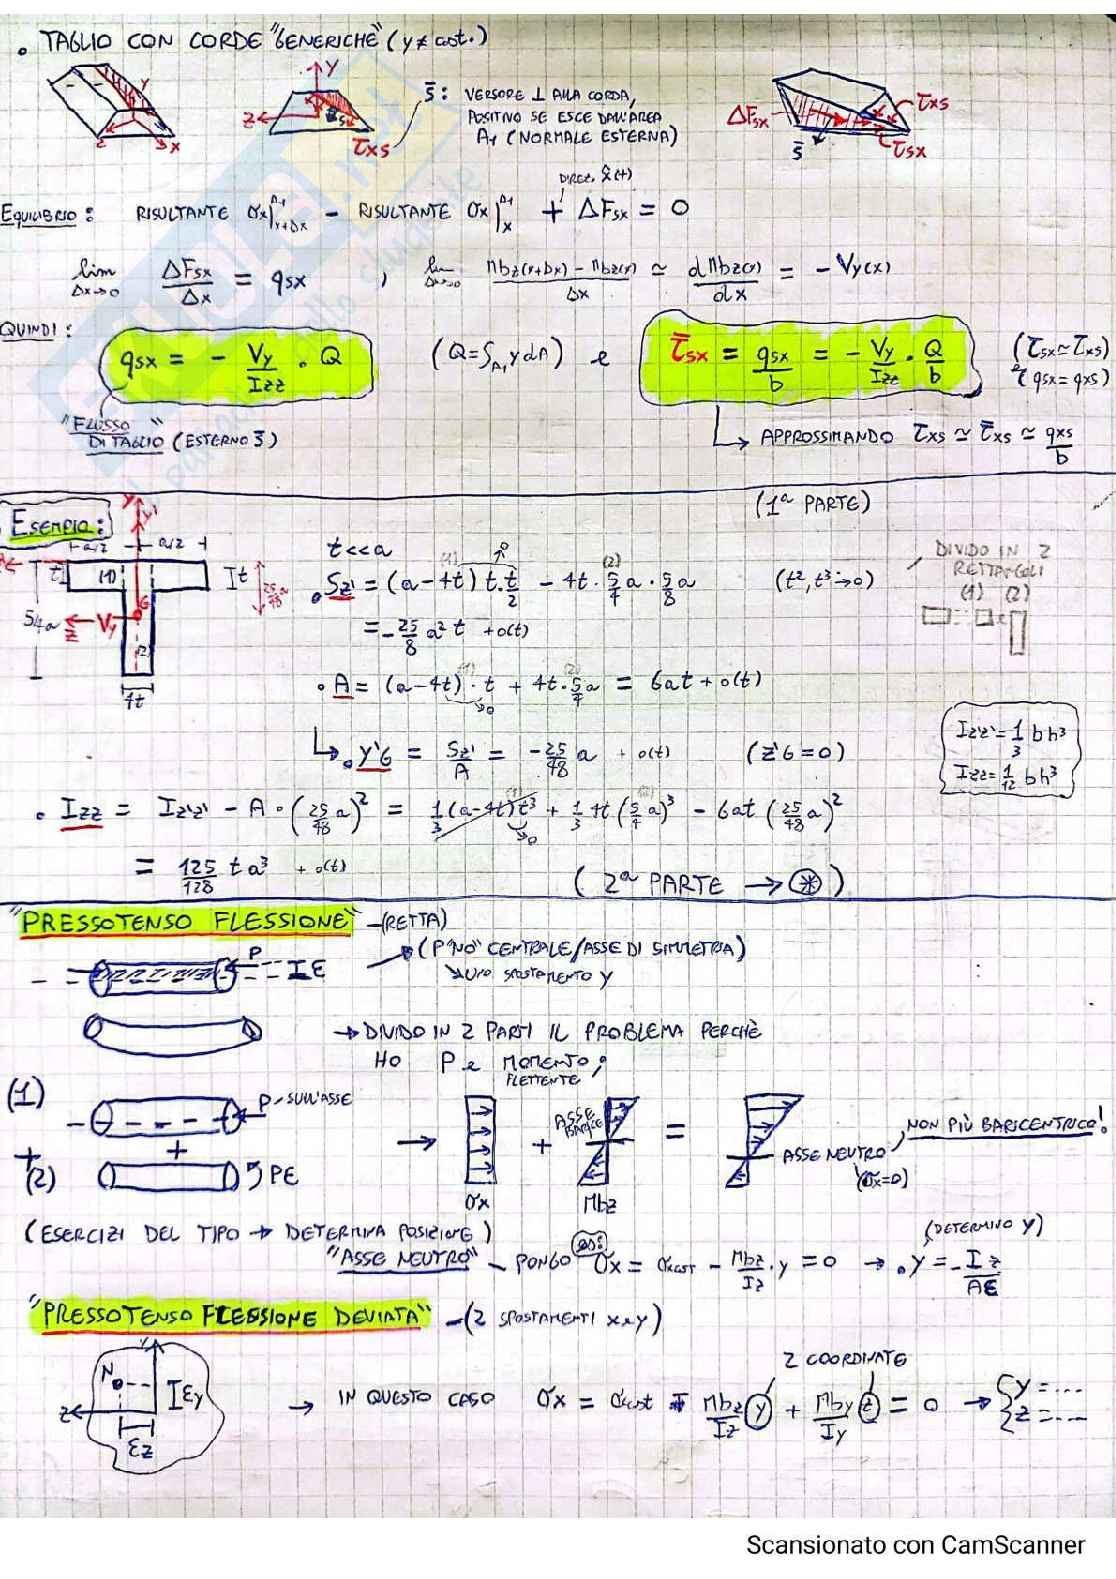 • TAGLIO CON CORDE "GENERICHE" (y≠cost.)
y
z
x
Y
z
x
s̄
τxs
s̄ : VERSORE ⊥ ALLA CORDA,
POSITIVO SE ESCE DALL'AREA
A1 (NORMALE ESTERNA)
ΔFsx
s̄
τxs
τsx
DIREZ. x̂(+)
EQUILIBRIO: RISULTANTE σx|^A1 x+Δx − RISULTANTE σx|^A1 x + ΔFsx = 0
lim Δx→0 ΔFsx/Δx = qsx , lim Δx→0 (Mbz(x+Δx) − Mbz(x))/Δx ≃ dMbz(x)/dx = − Vy(x)
QUINDI: qsx = − Vy/Izz · Q (Q=∫A1 y dA) e τ̄sx = qsx/b = − Vy/Izz · Q/b (τsx≃τxs)
(qsx = qxs)
"FLUSSO"
DI TAGLIO (ESTERNO s̄)
↳ APPROSSIMANDO τxs ≃ τ̄xs ≃ qxs/b
(1ª PARTE)
• ESEMPIO:
y
y'
a/2
a/2
t
(1)
t
25/48 a
5/4 a
z
Vy
G
(2)
4t
t<<a
• Sz' = (a−4t) t·t/2 − 4t·5/4 a · 5/8 a (t², t³→0)
(1)
→0
(2)
= −25/8 a² t + o(t)
DIVIDO IN 2
RETTANGOLI
(1) (2)
• A = (a−4t)·t + 4t·5/4 a = 6at + o(t)
(1)
→0
(2)
↳• y'G = Sz'/A = −25/48 a + o(t) (z'G=0)
Iz'z' = 1/3 bh³
Izz = 1/12 bh³
• Izz = Iz'z' − A · (25/48 a)² = 1/3 (a−4t)t³ + 1/3 4t (5/4 a)³ − 6at (25/48 a)²
(1)
→0
= 125/128 t a³ + o(t)
(2ª PARTE → ⊛)
"PRESSOTENSO FLESSIONE" −(RETTA)
P
E
→ (P "NO" CENTRALE/ASSE DI SIMMETRIA)
↘ UNO SPOSTAMENTO y
→ DIVIDO IN 2 PARTI IL PROBLEMA PERCHÈ
HO P e MOMENTO
FLETTENTE
(1)
P - SULL'ASSE
+
+
(2)
PE
→
σx
+
ASSE
Mbz
=
ASSE NEUTRO
(σx=0)
NON PIÙ BARICENTRICO!
(ESERCIZI DEL TIPO → DETERMINA POSIZIONE)
"ASSE NEUTRO" − PONGO es: σx = σcost − Mbz/Iz · y = 0 → • y = − Iz/AE
(DETERMINO y)
"PRESSOTENSO FLESSIONE DEVIATA" −(2 SPOSTAMENTI x e y)
y
N
Ey
z
Ez
2 COORDINATE
→ IN QUESTO CASO σx = σcost ∓ Mbz/Iz y + Mby/Iy z = 0 → { y = ...
z = ...
Scansionato con CamScanner